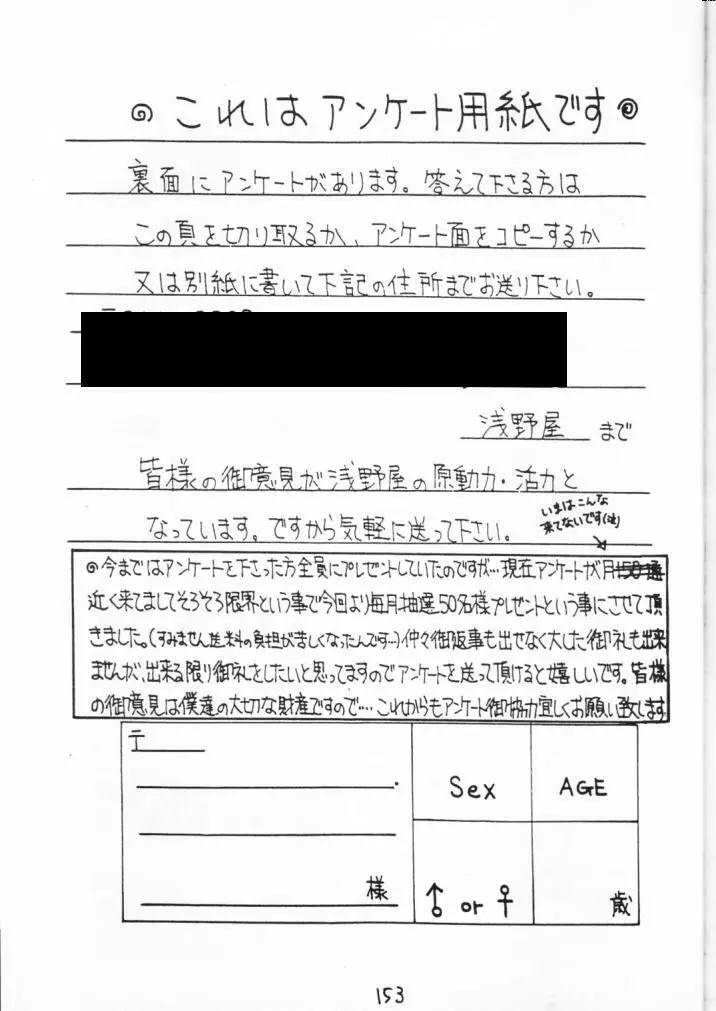 これはアンケート用紙です
裏面にアンケートがあります。答えて下さる方は
この頁を切り取るか、アンケート面をコピーするか
又は別紙に書いて下記の住所までお送り下さい。
浅野屋 まで
皆様の御意見が浅野屋の原動力・活力と
いまはこんな
来てないです(泣)
なっています。ですから気軽に送って下さい。
◎今まではアンケートを下さった方全員にプレゼントしていたのですが…現在アンケートが月150通
近く来てましてそろそろ限界という事で今回より毎月抽選50名様プレゼントという事にさせて頂
きました。(すみません送料の負担が苦しくなったんです…)仲々御返事も出せなく大した御礼も出来
ませんが、出来る限り御礼をしたいと思ってますのでアンケートを送って頂けると嬉しいです。皆様
の御意見は僕達の大切な財産ですので…これからもアンケート御協力宜しくお願い致します
〒
Sex
AGE
様
♂ or ♀
歳
153